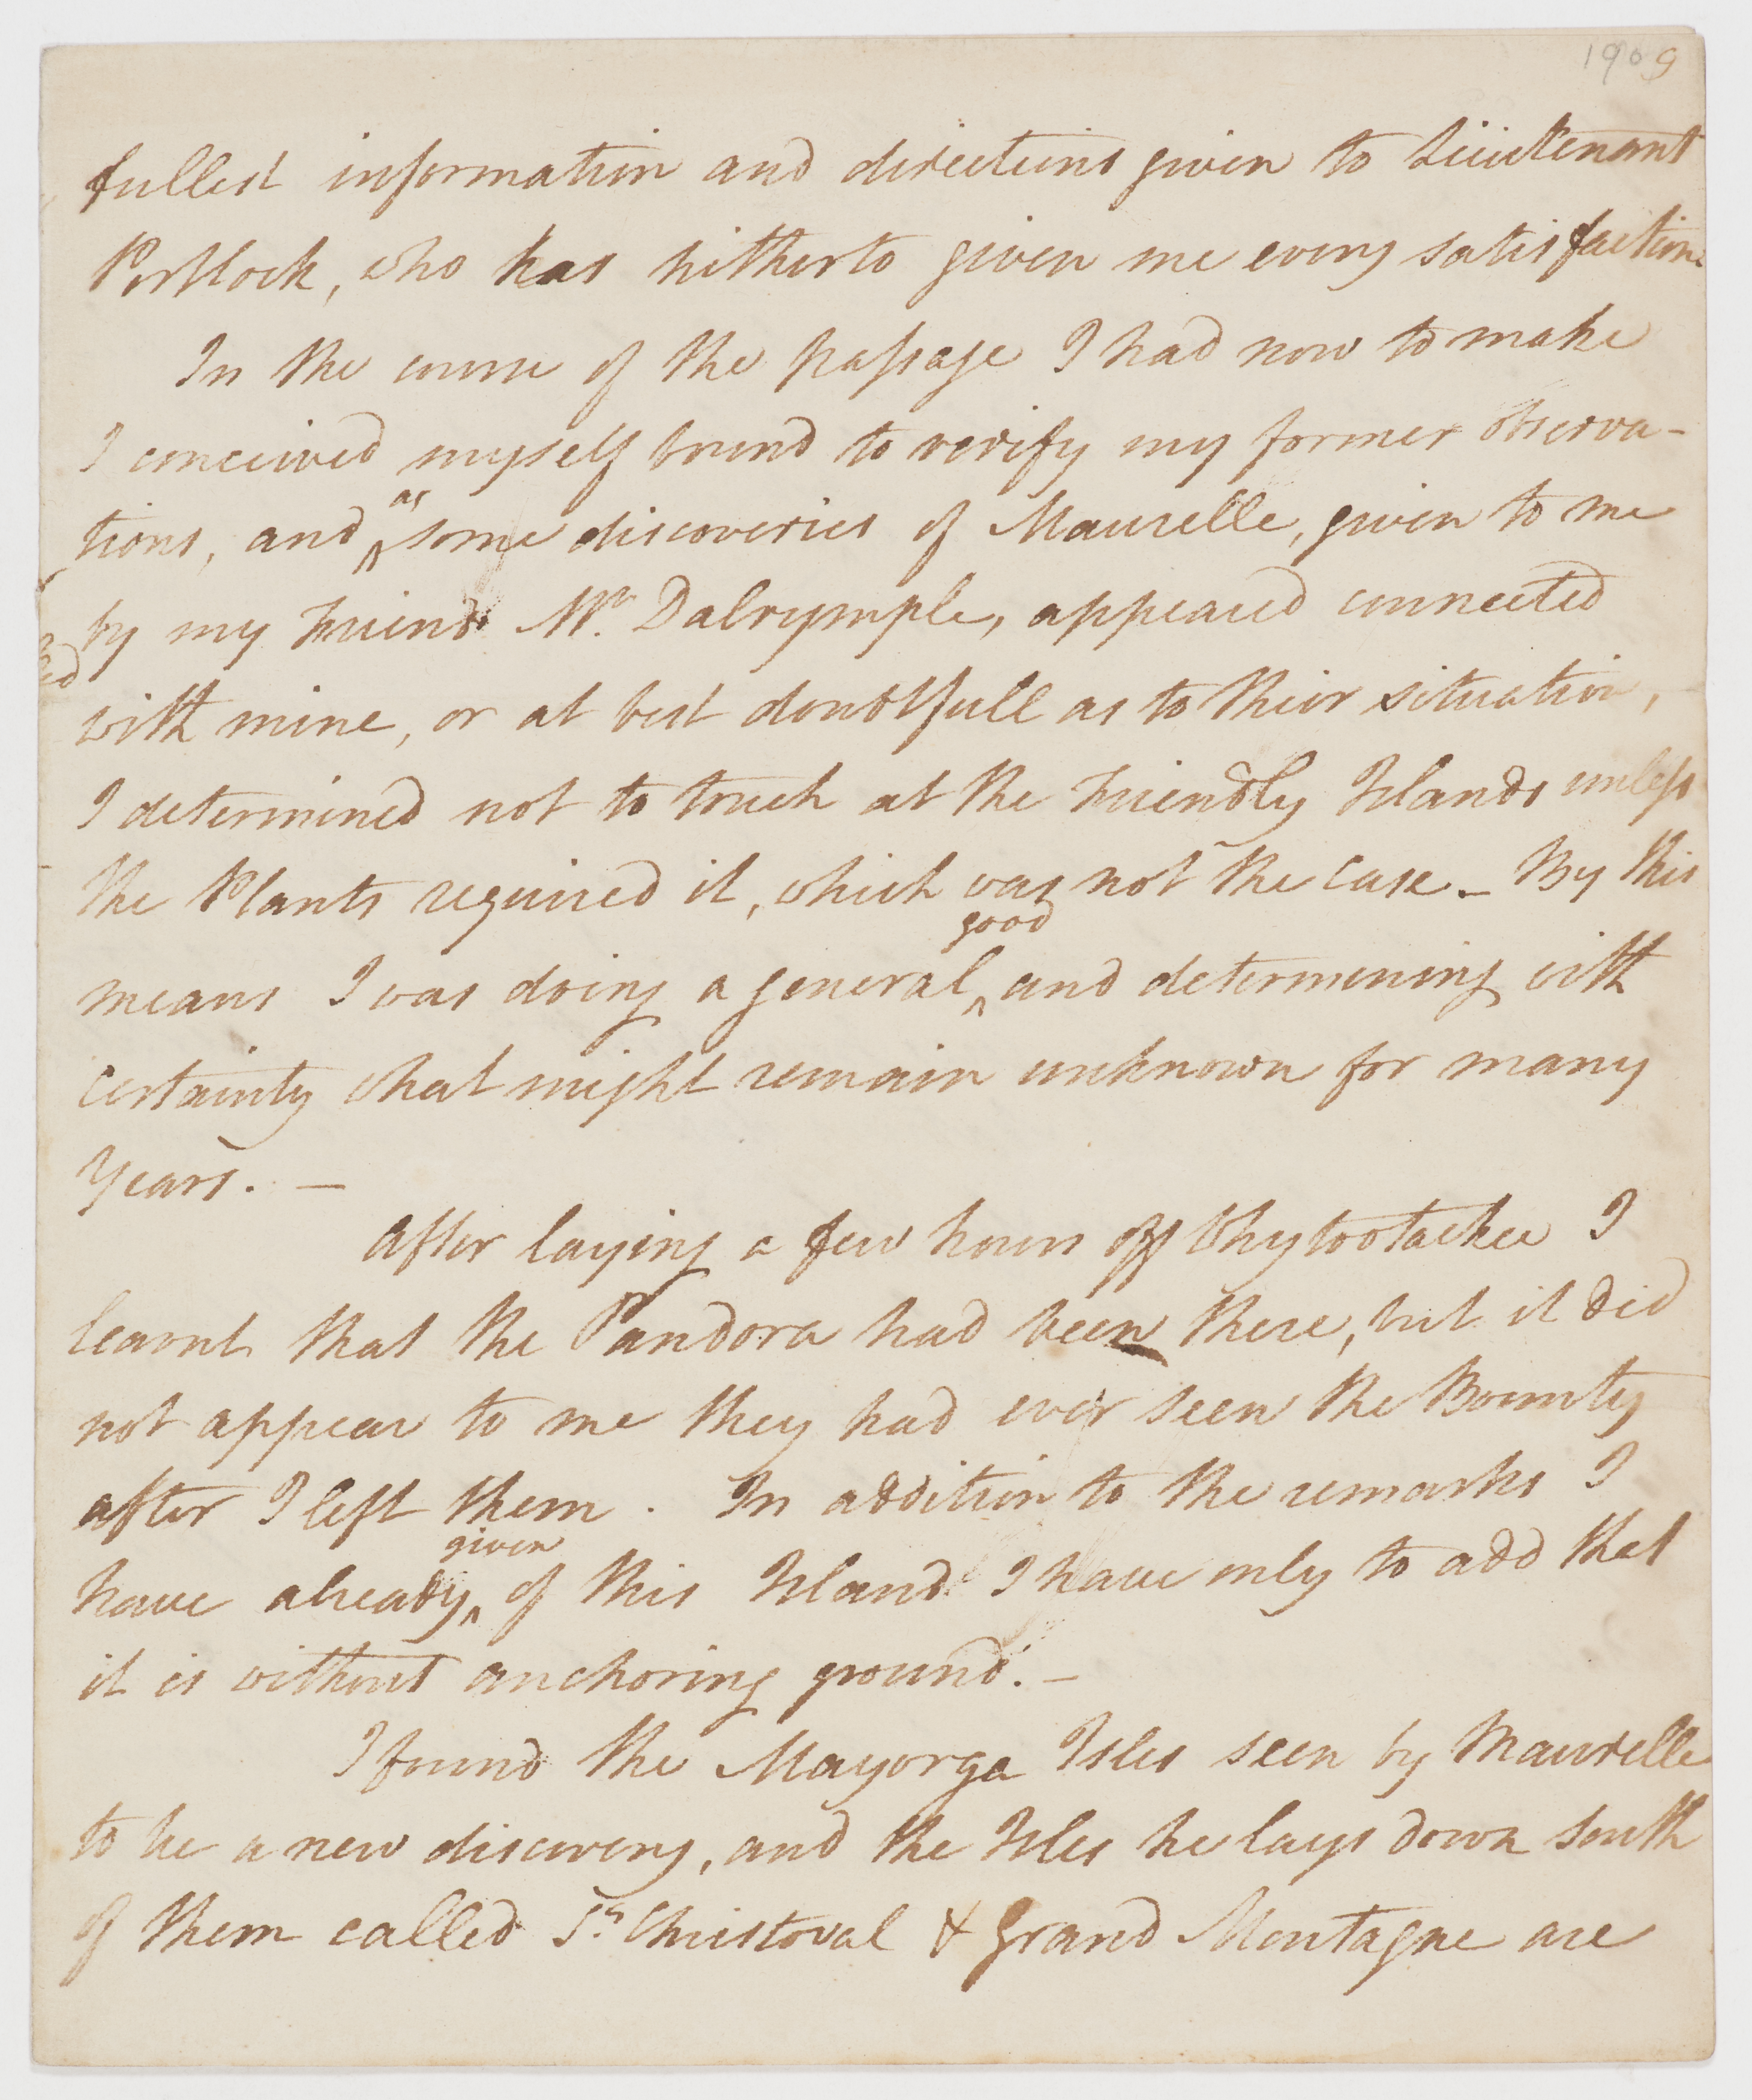 1909
fullest information and directions given to Lieutenant
Portlock, who has hitherto given me every satisfaction
In the course of the passage I had now to make
I conceived myself bound to verify my former observa-
tions, and as some discoveries of Maurelle, given to me
by my Friend Mr. Dalrymple, appeared connected
with mine, or at best doubtfull as to their situation,
I determined not to touch at the Friendly Islands unless
the Plants required it, which was not the case_ By this
means I was doing a general good and determining with
certainty what might remain unknown for many
Years. _
After laying a few hours off Whytootackee I
learnt that the Pandora had been there, but it did
not appear to me they had ever seen the Bounty
after I left them. In addition to the remarks I
have already given of this Island I have only to add that
it is without anchoring ground. _
I found the Mayorga Isles seen by Maurelle
to be a new discovery, and the Isles he lays down South
of them called St. Christoval & Grand Montagne are